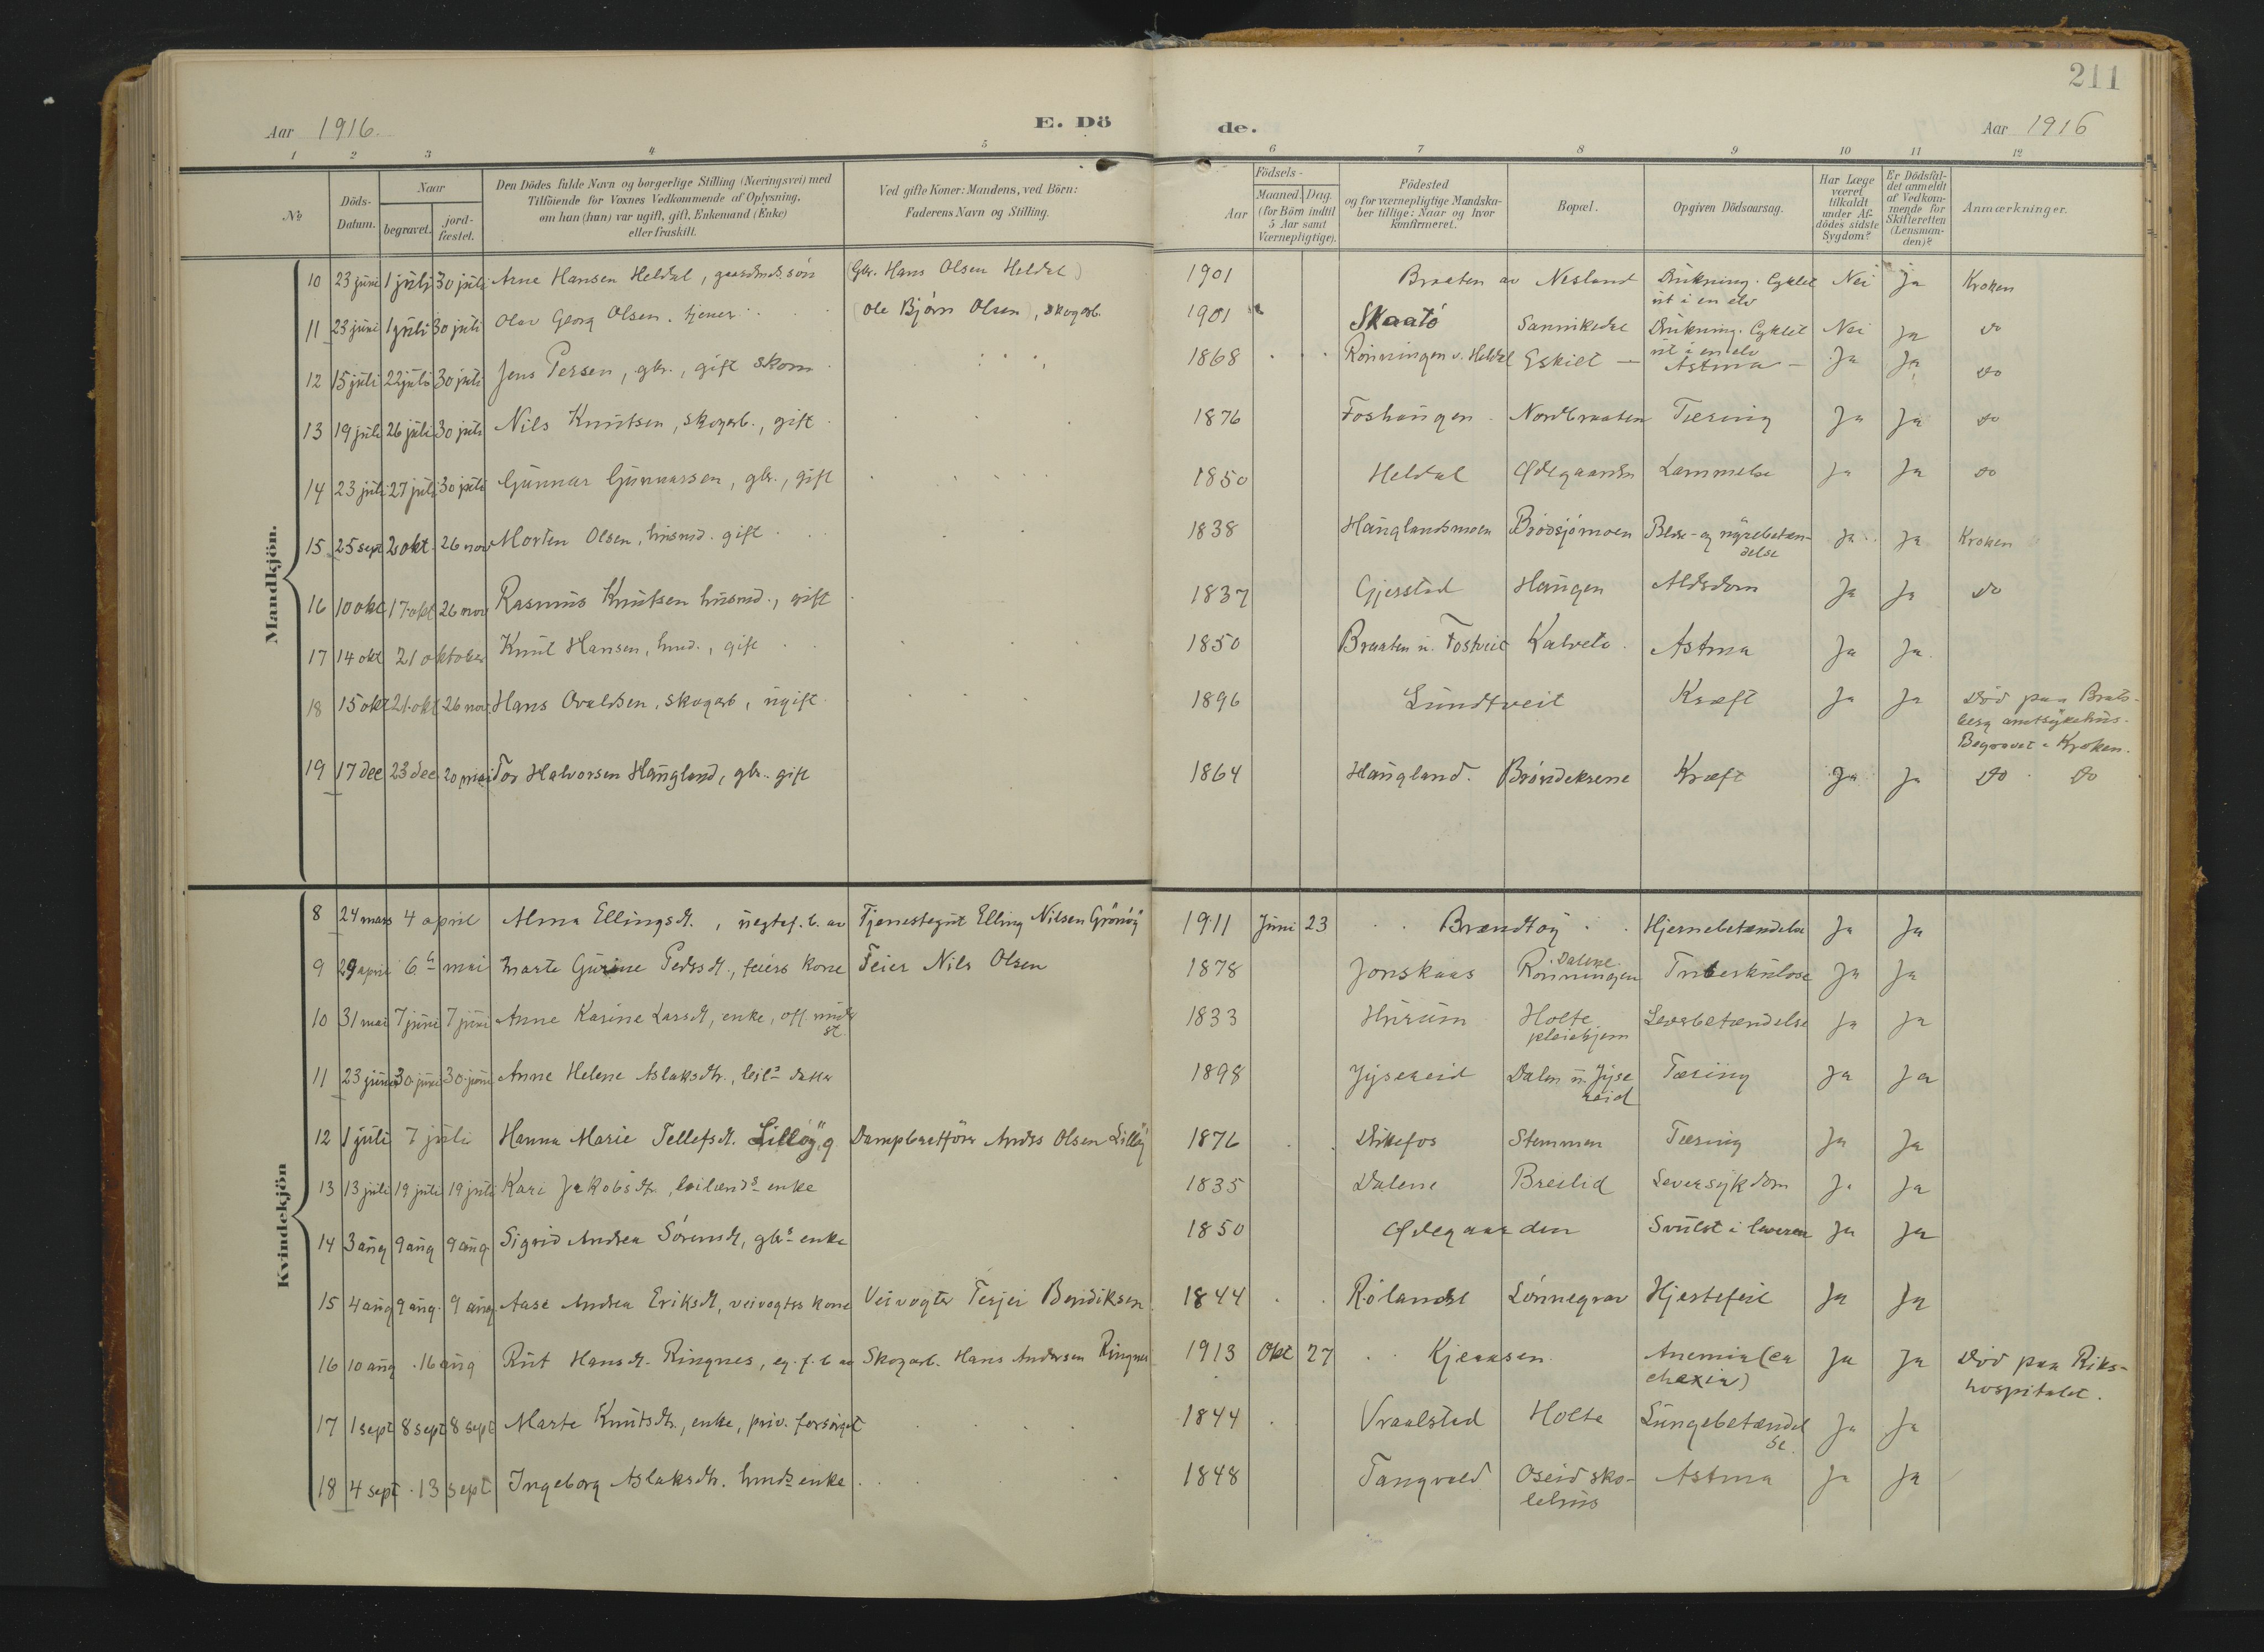 211
Aar 1916. E. Dö de. Aar 1916
1 2 3 4 5 6 7 8 9 10 11 12
№
Döds-Datum.
Naar
begravet.
jord-fæstet.
Den Dödes fulde Navn og borgerlige Stilling (Næringsvei) med
Tilföiende for Voxnes Vedkommende af Oplysning,
om han (hun) var ugift, gift, Enkemand (Enke)
eller fraskilt.
Ved gifte Koner: Mandens, ved Börn:
Faderens Navn og Stilling.
Födsels-
Aar
Maaned. Dag.
(for Börn indtil
5 Aar samt
Værnepligtige).
Födested
og for værnepligtige Mandska-
ber tillige: Naar og hvor
konfirmeret.
Bopæl.
Opgiven Dödsaarsag.
Har Læge
været
tilkaldt
under Af-
dödes sidste
Sygdom?
Er Dödsfal-
det anmeldt
af Vedkom-
mende for
Skifteretten
(Lensman-
den)?
Anmærkninger.
Mandkjön.
10 23 juni 1 juli 30 juli Arne Hansen Heldal, gaardmds. sön (Gbr. Hans Olsen Heldal) 1901 Braaten av Nesland Drukning. Cyklet Nei Ja Kroken
ut i en elv
11 23 juni 1 juli 30 juli Olav Georg Olsen. tjener (Ole Björn Olsen), skogarb. 1901 Skaatö Sannikedal Drukning. Cyklet Nei Ja do
ut i en elv
12 15 juli 22 juli 30 juli Jens Persen, gbr., gift skom 1868 Rönningen u. Heldal Eskilt — Astma — Ja Ja do
13 19 juli 26 juli 30 juli Nils Knutsen, skogarb., gift 1876 Foshaugen Nordbraaten Tæring Ja Ja do
14 23 juli 27 juli 30 juli Gunnar Gunnarsen, gbr., gift 1850 Heldal Ødegaarden Lammelse Ja Ja do
15 25 sept 2 okt. 26 nov Morten Olsen, husmd. gift 1838 Hauglandsmoen Brödsjömoen Blære- og nyrebetæn- Ja Ja Kroken
delse
16 10 okt 17 okt 26 nov Rasmus Knutsen husmd., gift 1837 Gjerstad Haugen Aldersdom Ja Ja do
17 14 okt 21 oktober Knut Hansen, hmd., gift 1850 Braaten u. Fostveit Kalveto Astma Ja Ja
18 15 okt 21. okt 26 nov. Hans Ovaldsen, skogarb, ugift 1896 Lundtveit Kræft Ja Ja Död paa Brats-
berg amtsykehus.
Begravet i Kroken.
19 17 dec 23 dec 20 mai Tor Halvorsen Haugland, gbr. gift 1864 Haugland. Bröndeksene Kræft Ja Ja do do
Kvindekjön
8 24 mars 4 april Alma Ellingsdt., uegtef. b. av Tjenestegut Elling Nilsen Grönöy 1911 Juni 23 Brændtöy Hjernebetændelse Ja Ja
9 29 april 6 mai Marte Gurine Pedersdt., feiers kone Feier Nils Olsen 1878 Jonskaas Rönningen Dalene Tuberkulose Ja Ja
10 31 mai 7 juni 7 juni Anne Karine Larsdt, enke, off. underst. 1833 Hurum Holte Leverbetændelse Ja Ja
pleiehjem
11 23 juni 30 juni 30. juni Anne Helene Aslaksdtr., leils datter 1898 Jysereid Dalen u. Jyse Tæring Ja Ja
reid
12 1 juli 7 juli Hanna Marie Tellefsdt. Lillöy, g Dampbaatförer Anders Olsen Lillöy 1876 Dikefos Stemmen Tæring Ja Ja
13 13 juli 19 juli 19 juli Kari Jakobsdtr., leilænds enke 1835 Dalene Breilid Leversykdom Ja Ja
14 3 aug 9 aug 9 aug. Sigrid Andrea Sörensdt, gbrs enke 1850 Ødegaarden Svulst i leveren Ja Ja
15 4 aug 9 aug. 9 aug Aase Andrea Eriksdt, veivogters kone Veivogter Terjei Bendiksen 1844 Rölandsl Lönnegrav Hjertefeil Ja Ja
16 10 aug 16 aug Rut Hansdt. Ringnes, eg. f. b av Skogarb. Hans Andersen Ringnes 1913 Okt 27 Kjeaasen Anemia (ca Ja Ja Död paa Riks-
chexia) hospitalet.
17 1 sept 8 sept 8 sept Marte Knutsdtr., enke, priv. forsörget 1844 Vraalstad Holte Lungebetændel Ja Ja
se.
18 4 sept 13 sept Ingeborg Aslaksdtr. hmds enke 1848 Tangvald Oseid sko- Astma Ja Ja
lehus